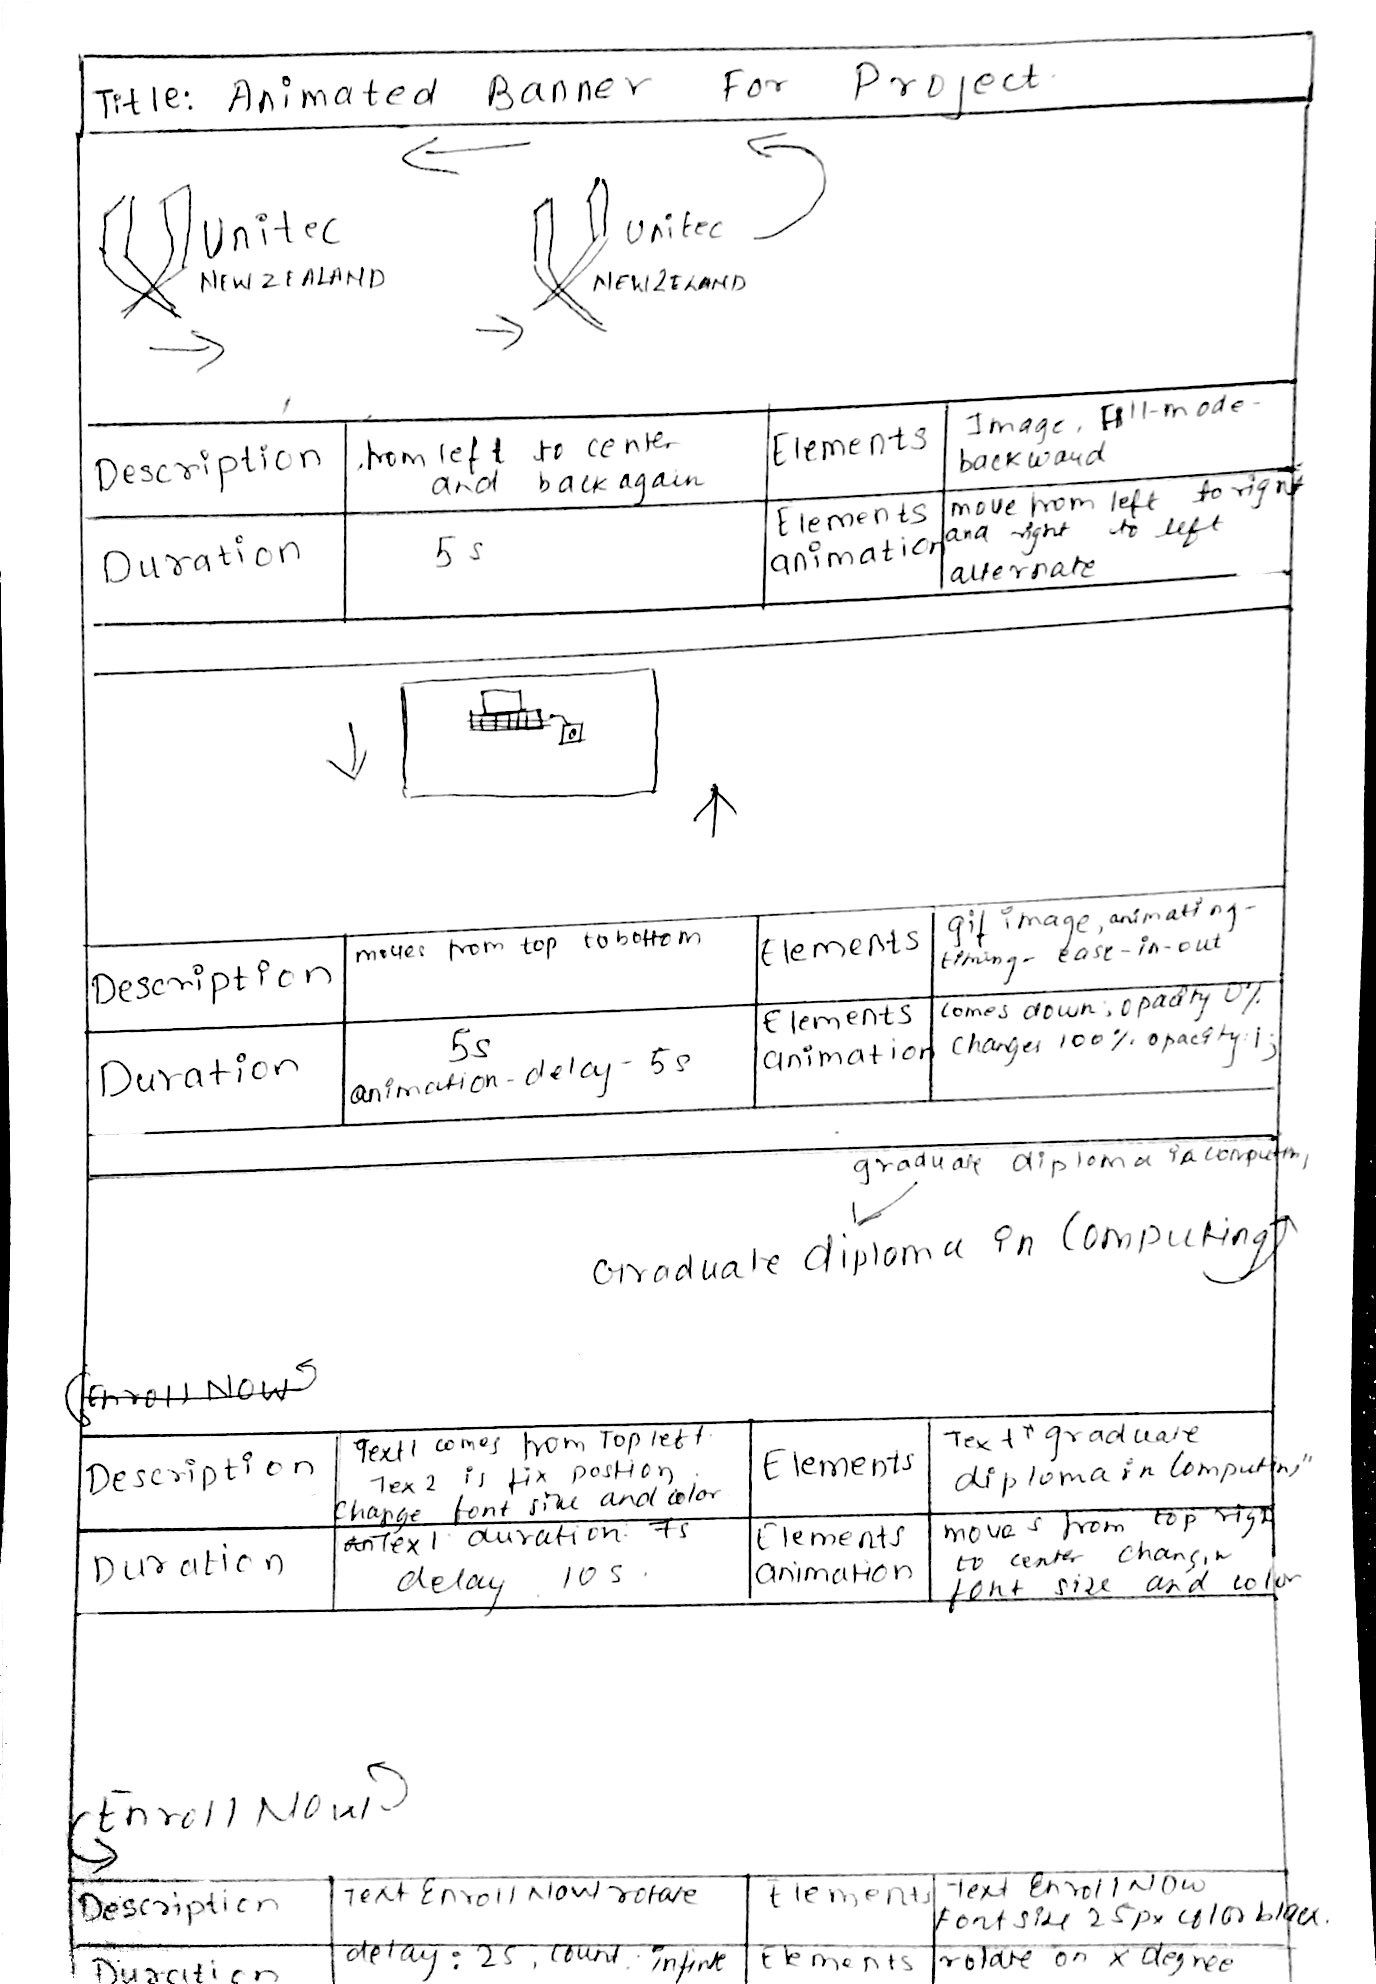 Title: Animated Banner For Project.
Unitec
NEW ZEALAND
Unitec
NEWZELAND
Description
from left to center
and back again
Elements
Image, Fill-mode-
backward
Duration
5s
Elements
animation
move from left to right
and right to left
alternate
Description
moves from top to bottom
Elements
gif image, animating-
timing- ease-in-out
Duration
5s
animation-delay- 5s
Elements
animation
comes down; opacity 0%
changes 100% opacity:1;
graduate diploma in computing
Graduate diploma in Computing
Enroll NOW
Description
Text1 comes from Top left.
Tex 2 is fix postion.
Change font size and color
Elements
Text "graduate
diploma in Computing"
Duration
Tex1 duration: 7s
delay 10s.
Elements
animation
moves from top right
to center changin
font size and color
Enroll Now
Description
Text Enroll Now rotate
Elements
Text Enroll Now
Font size 25px color black.
Duration
delay: 2s, count: infinte
Elements
rotate on x degree